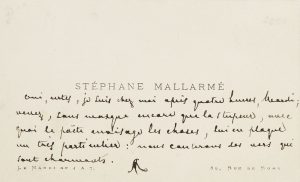 STÉPHANE MALLARMÉ
oui, certes, je suis chez moi après quatre heures, Mardi;
venez, sans masque encore que la stupeur, avec
quoi le poète envisage les choses, lui en plaque
un très particulier: nous causerons des vers qui
sont charmants.
LE MARDI DE 4 A 7.
89, RUE DE ROME